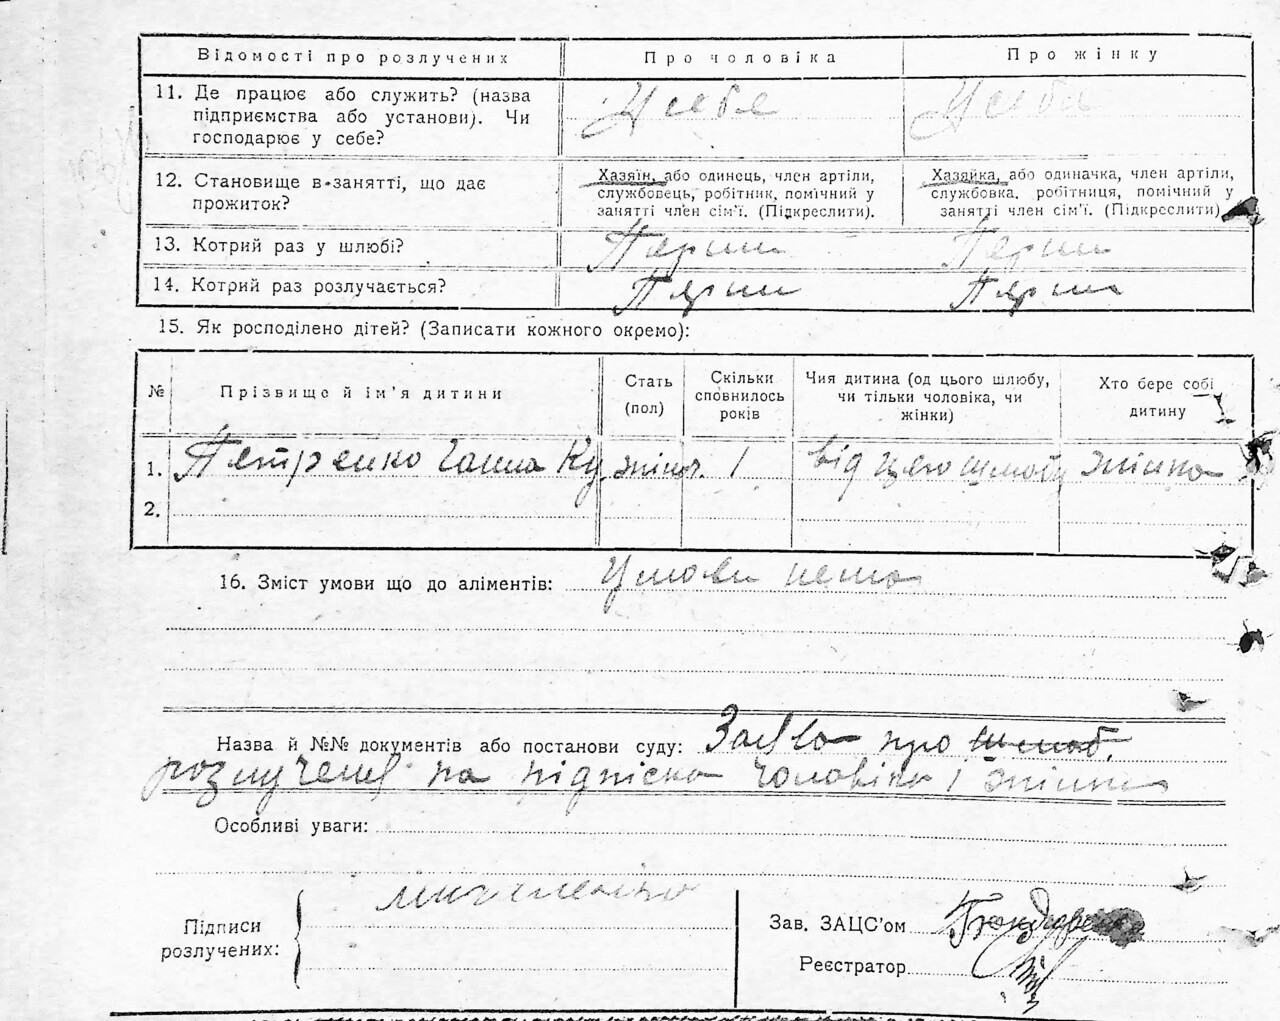 Відомості про розлучених Про чоловіка Про жінку
11. Де працює або служить? (назва підприємства або установи). Чи господарює у себе? У себе У себе
12. Становище в занятті, що дає прожиток? Хазяїн, або одинець, член артілі, службовець, робітник, помічний у занятті член сім'ї. (Підкреслити). Хазяйка, або одиначка, член артілі, службовка, робітниця, помічний у занятті член сім'ї. (Підкреслити)
13. Котрий раз у шлюбі? Перши Перши
14. Котрий раз розлучається? Перши Перши
15. Як росподілено дітей? (Записати кожного окремо):
№ Прізвище й ім'я дитини Стать (пол) Скільки сповнилось років Чия дитина (од цього шлюбу, чи тільки чоловіка, чи жінки) Хто бере собі дитину
1. Петренко Ганна Ку жіноч. 1 від цего шлюбу жінка
2.
16. Зміст умови що до аліментів: Умови нема
Назва й №№ документів або постанови суду: Заява про шлюб
розлучения па підписка чоловіка і жінки
Особливі уваги:
Підписи
розлучених:
Зав. ЗАЦС'ом
Реєстратор